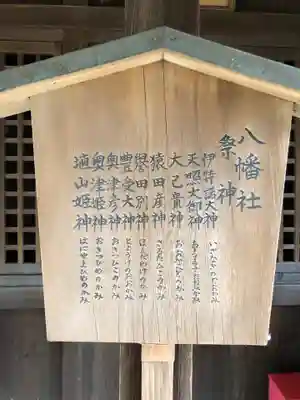 八幡社
祭神
伊弉諾大神 いざなぎのおおかみ
天照大御神 あまてらすおおみかみ
大己貴神 おおなむちのかみ
猿田彦神 さるたひこのかみ
誉田別神 ほんだわけのかみ
豊受大神 とようけのおおかみ
奥津彦神 おきつひこのかみ
奥津姫神 おきつひめのかみ
埴山姫神 はにやまひめのかみ